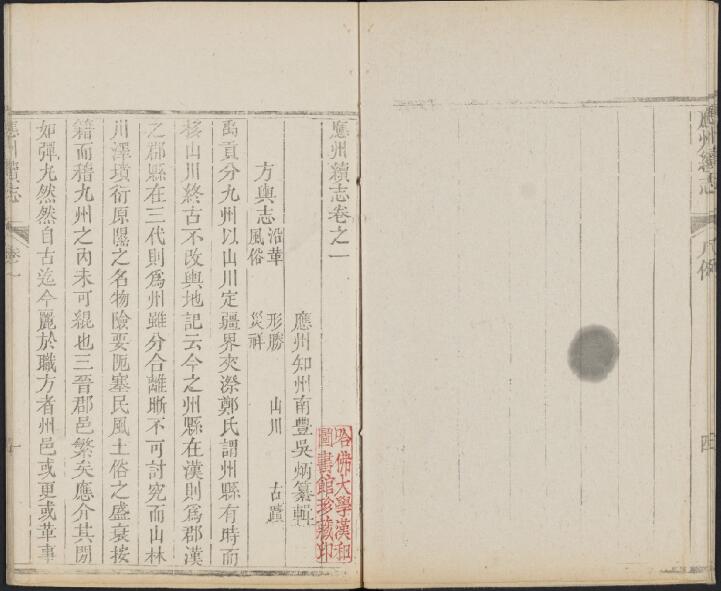 應州續志
凡例
四
應州續志卷之一
應州知州南豐吳炳纂輯
哈佛大學漢和
圖書館珍藏印
方輿志
沿革 形勝 山川 古蹟
風俗 災祥
禹貢分九州以山川定疆界夾漈鄭氏謂州縣有時而
移山川終古不改輿地記云今之州縣在漢則爲郡漢
之郡縣在三代則爲州雖分合離晣不可討究而山林
川澤墳衍原隰之名物險要阨塞民風土俗之盛衰按
籍而稽九州之內未可緄也三晉郡邑繁矣應介其閒
如彈丸然然自古迄今麗於職方者州邑或更或革事
應州續志
卷之一
一